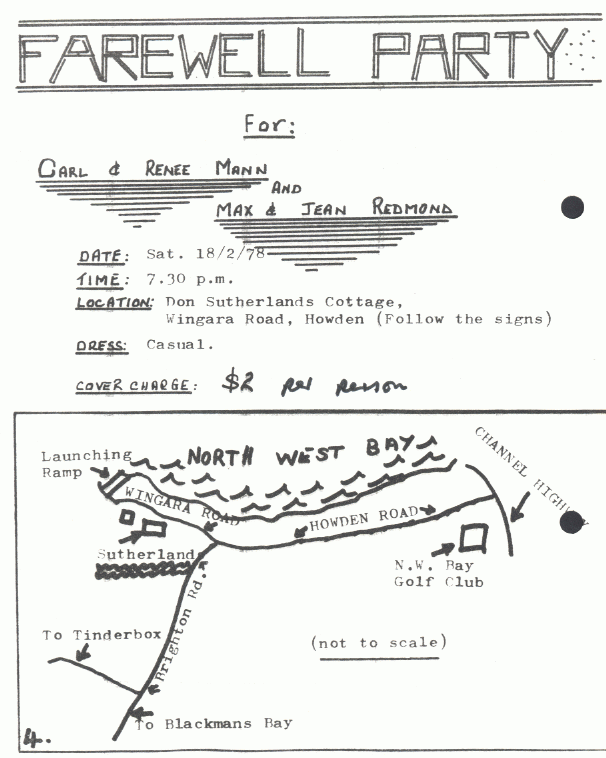 FAREWELL PARTY
For:
CARL & RENEE MANN
AND
MAX & JEAN REDMOND
DATE: Sat. 18/2/78
TIME: 7.30 p.m.
LOCATION: Don Sutherlands Cottage,
Wingara Road, Howden (Follow the signs)
DRESS: Casual.
COVER CHARGE: $2 per person
Launching
Ramp
NORTH WEST BAY
CHANNEL HIGHWAY
WINGARA ROAD
HOWDEN ROAD
Sutherland
N.W. Bay
Golf Club
Brighton Rd.
To Tinderbox
(not to scale)
To Blackmans Bay